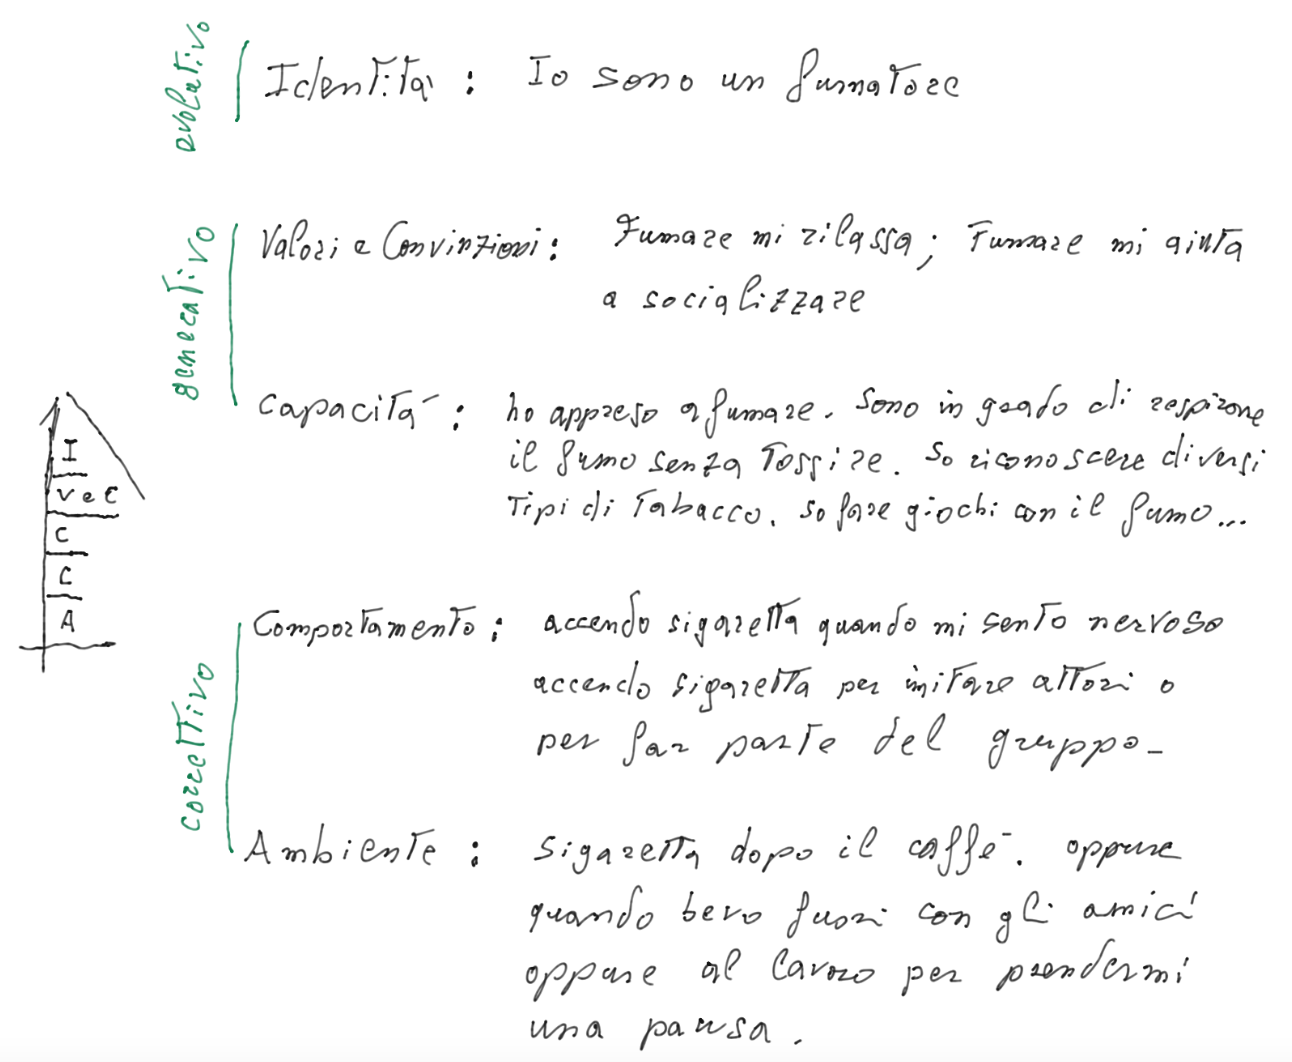 evolutivo
Identità: Io sono un fumatore
generativo
Valori e Convinzioni: Fumare mi rilassa; Fumare mi aiuta
a socializzare
Capacità: ho appreso a fumare. Sono in grado di respirare
il fumo senza Tossire. So riconoscere diversi
Tipi di Tabacco. So fare giochi con il fumo...
I
V e C
C
C
A
correttivo
Comportamento: accendo sigaretta quando mi sento nervoso
accendo sigaretta per imitare attori o
per far parte del gruppo-
Ambiente: sigaretta dopo il caffè. oppure
quando bevo fuori con gli amici
oppure al lavoro per prendermi
una pausa.